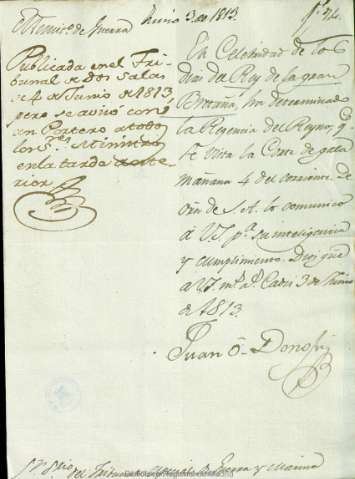 Junio 3 de 1813.
Publicada en el Tri-
bunal de dos Salas
de 4 de Junio de 1813
pero se avisó con
un Portero a todos
los Sres Ministros
en la tarde ante-
rior
En Celebridad de los
dias del Rey de la gran
Bretaña, ha determinado
la Regencia del Reyno, q.
se vista la Corte de gala
mañana 4 del corriente. De
orn de S.A. lo comunico
á V.S. pa. su inteligencia
y cumplimiento. Dios gue.
a V.S. ms. as. Cadiz 3 de Junio
de 1813
Juan O-Donojú
del Tribunal Especial de Guerra y Marina